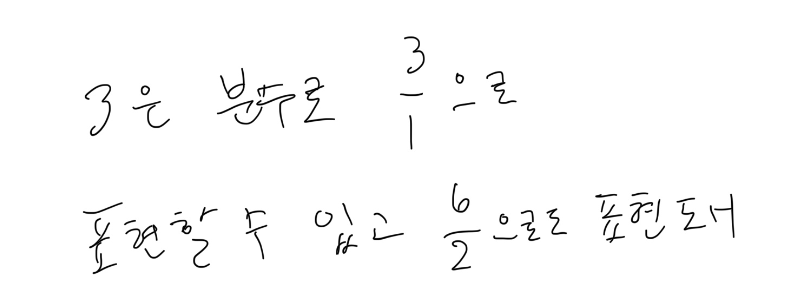 3은 분수로 3/1 으로
표현할 수 있고 6/2 으로도 표현 도ㅐ